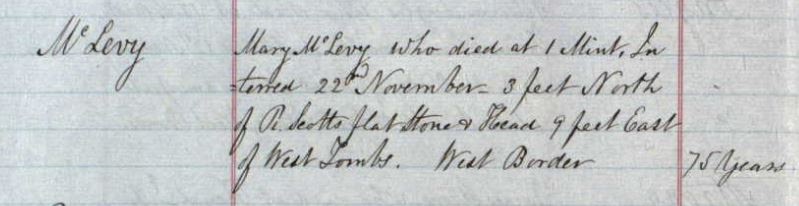 McLevy Mary McLevy who died at 1 Mint, In
=terred 22d November - 3 feet North
of R. Scotts flat Stone & Head 9 feet East
of West Tombs. West Border 75 Years